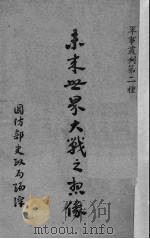 軍事叢刊第二種
未來世界大戰之想像
國防部史政局編譯